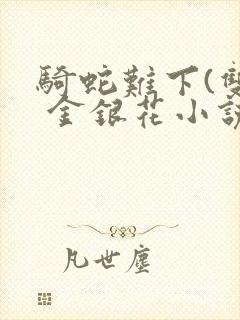 騎蛇難下(雙
金銀花小說
凡世塵